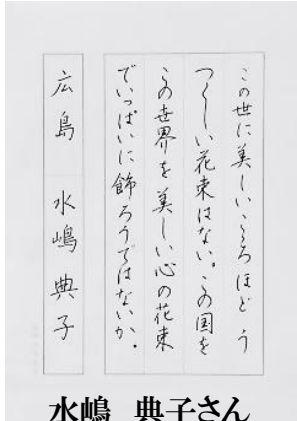 この世に美しいこころほど う
つくしい花束はない。この国を
この世界を美しい心の花束
でいっぱいに飾ろうではないか。
広島 水嶋典子
水嶋 典子さん